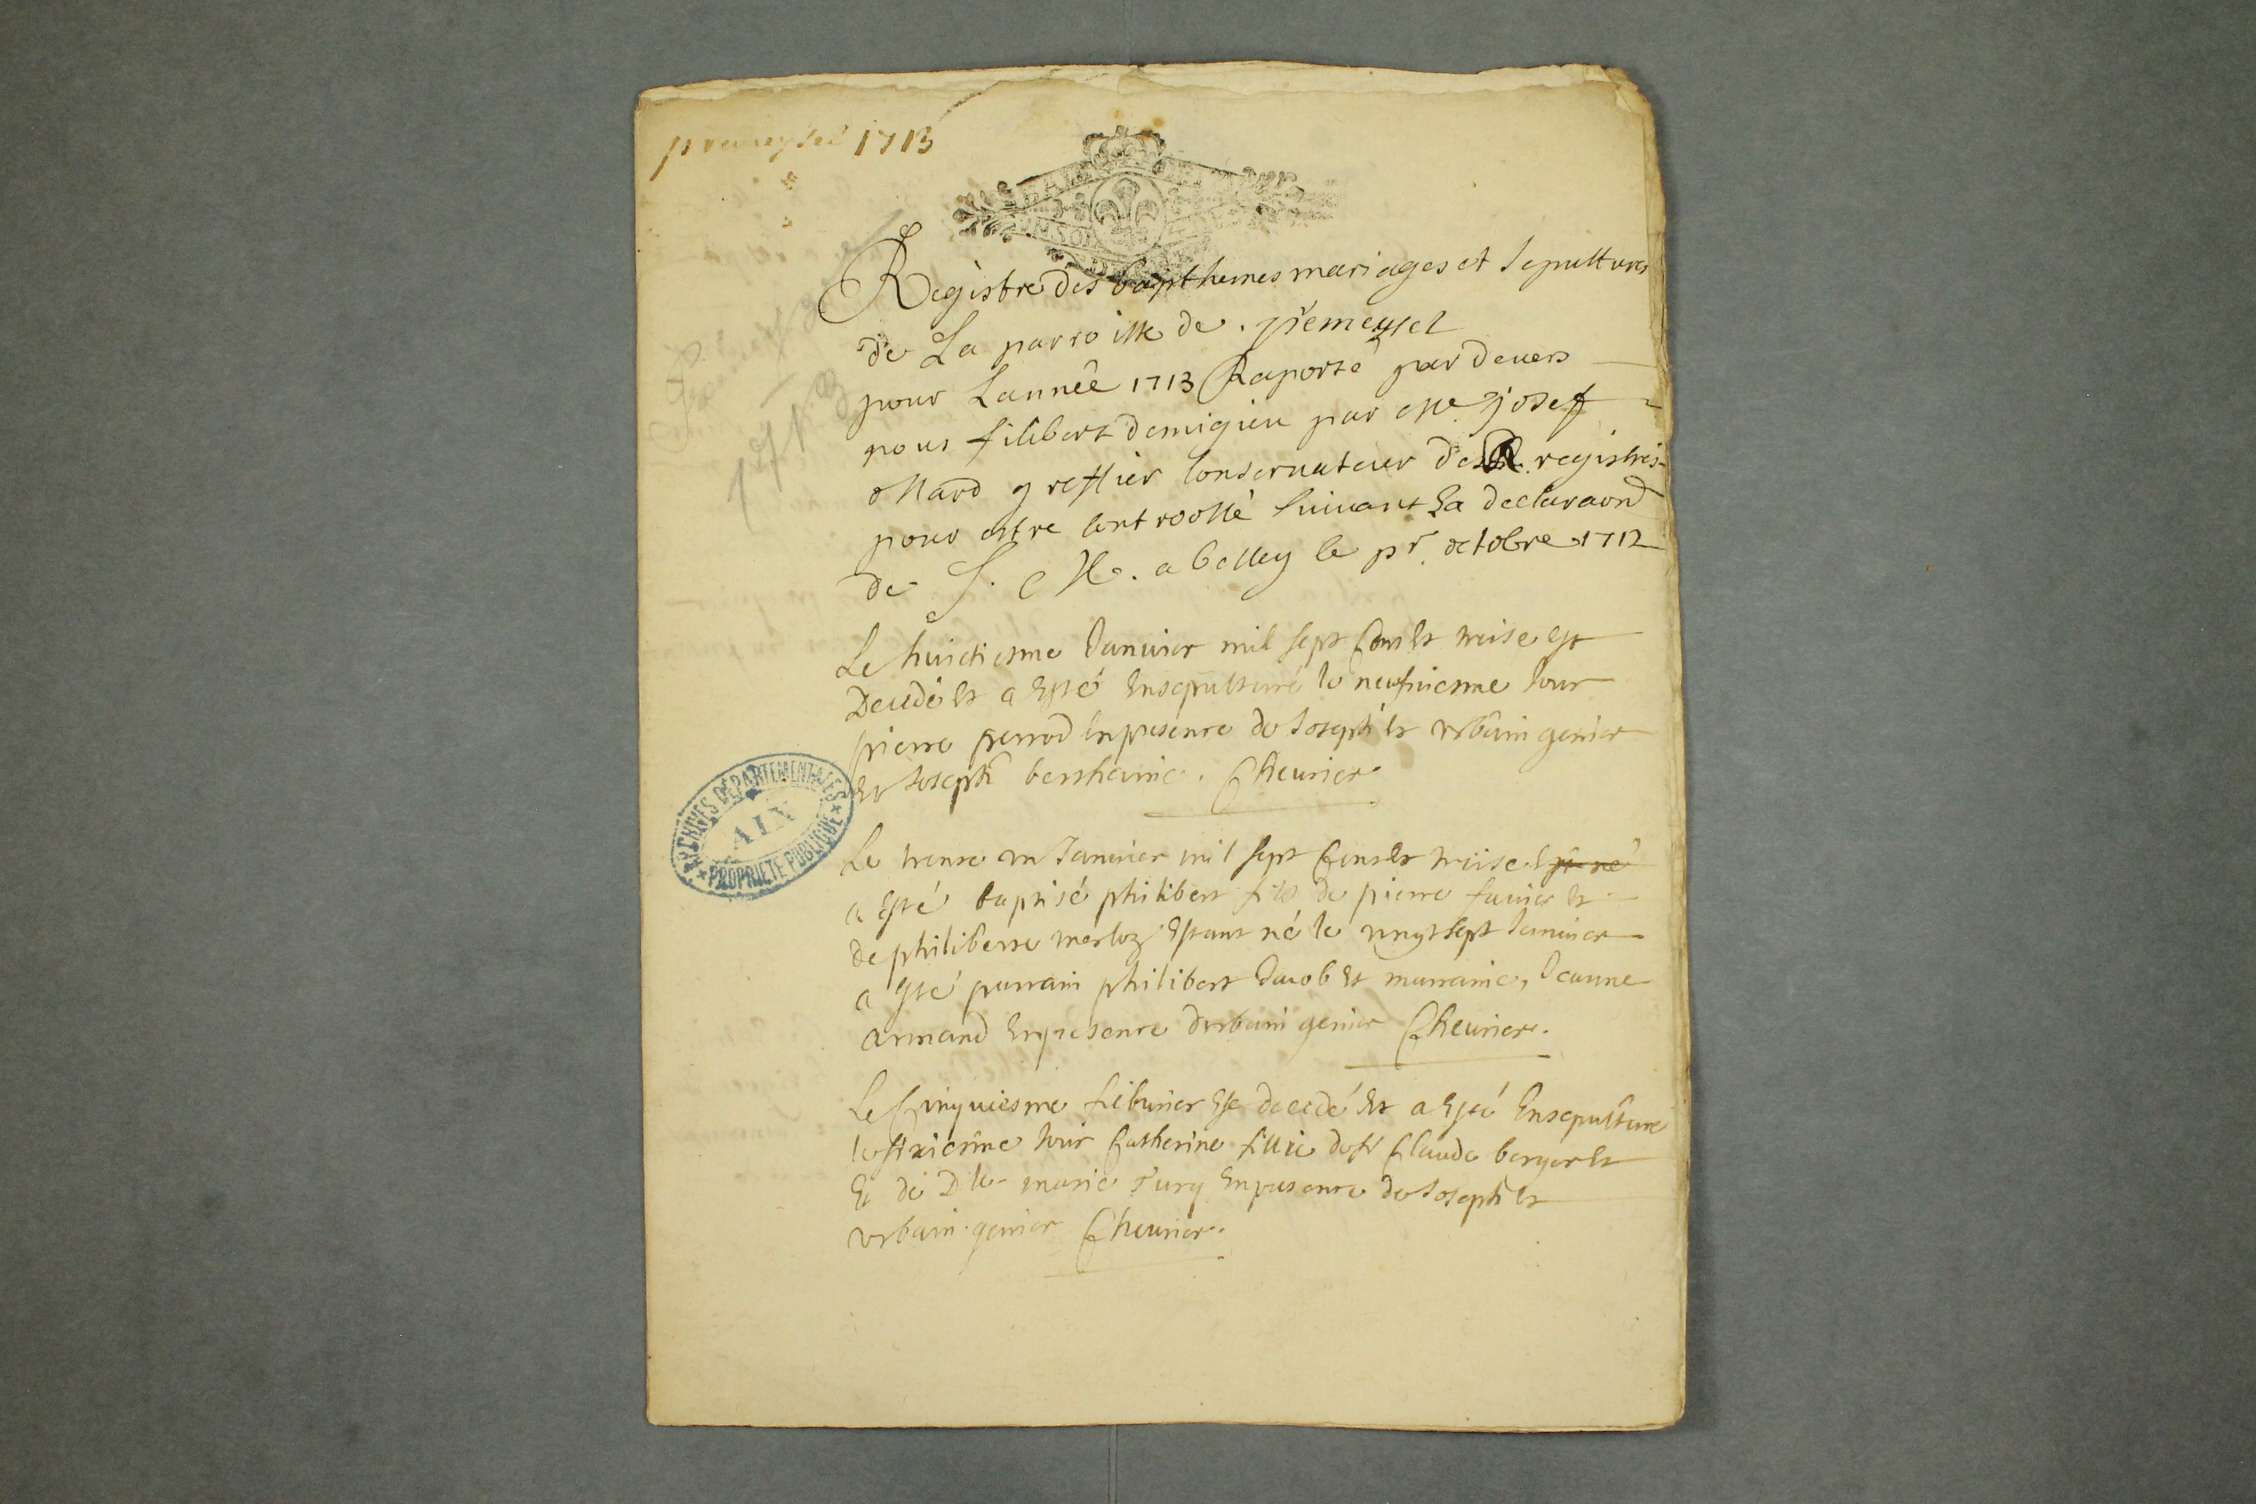 premeysel 1713
Registre des bapthemes mariages et sepultures
de La parroisse de premeysel
pour Lannée 1713 Raporté par devers
nous filibert demigieu par Me josef
ollard greffier Conservateur des registres
pour estre controollé suivant La declaraon
de S. M. a belley le pr. octobre 1712
Le huictiesme Januier mil sept Cens Et treise est
Decedé Et a Esté Ensepulturé le neufuiesme Jour
pierre perrod En presence de Joseph Et Vrbain genier
Et Joseph Cheurier
ARCHIVES DÉPARTEMENTALES
AIN
PROPRIÉTÉ PUBLIQUE
Le trente vn Januier mil sept Cens Et treise Est né
a Esté baptisé philibert fils de pierre fauier Et
de philiberte merloz Estant né le vingt sept Januier
a Esté parrain philibert Jacob Et marraine, Jeanne
armand En presence durbain genier Cheurier.
Le Cinquiesme feburier Est decedé Et a Esté Ensepulturé
le sixiesme Jour Catherine fillie de sr Claude berger Et
Et de Dlle marie Jury En presence de Joseph Et
vrbain genier Cheurier.